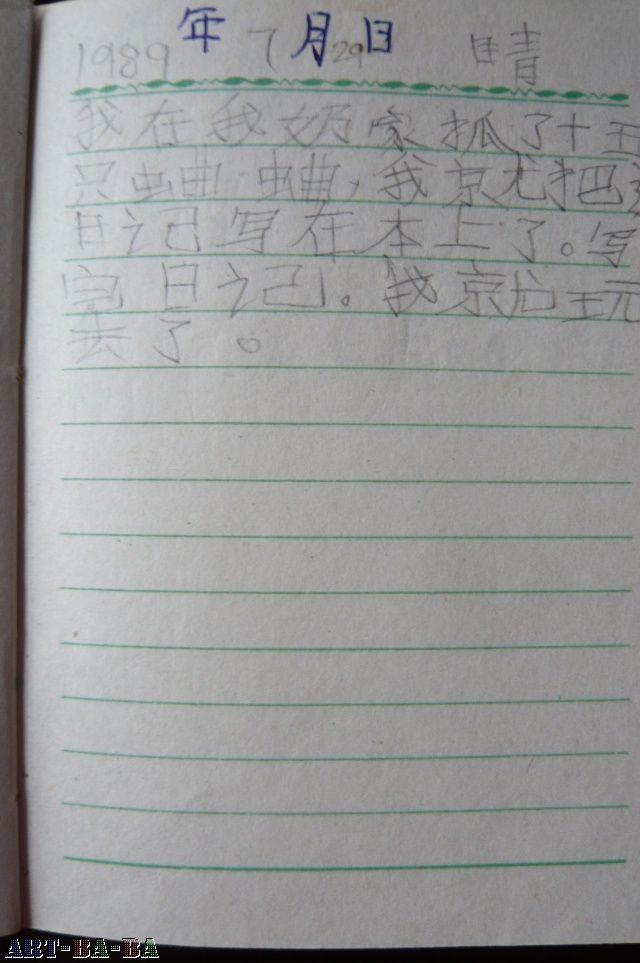 1989年7月29日 晴
我在我奶家抓了十五
只蛐蛐,我就把
日记写在本上了。写
完日记。我就玩
去了。
ART-BA-BA